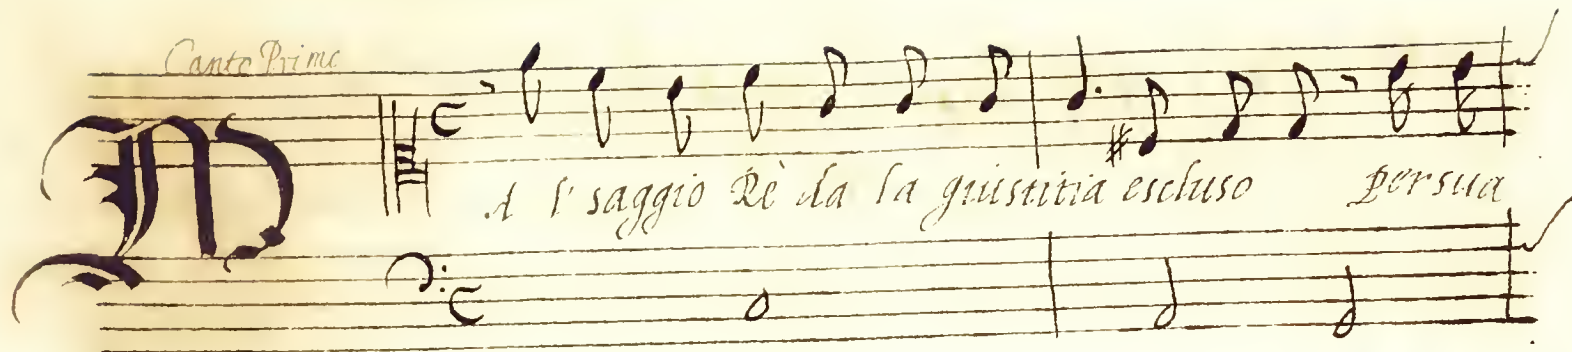 Canto Primo
M A l' saggio Rè da la giustitia escluso persua